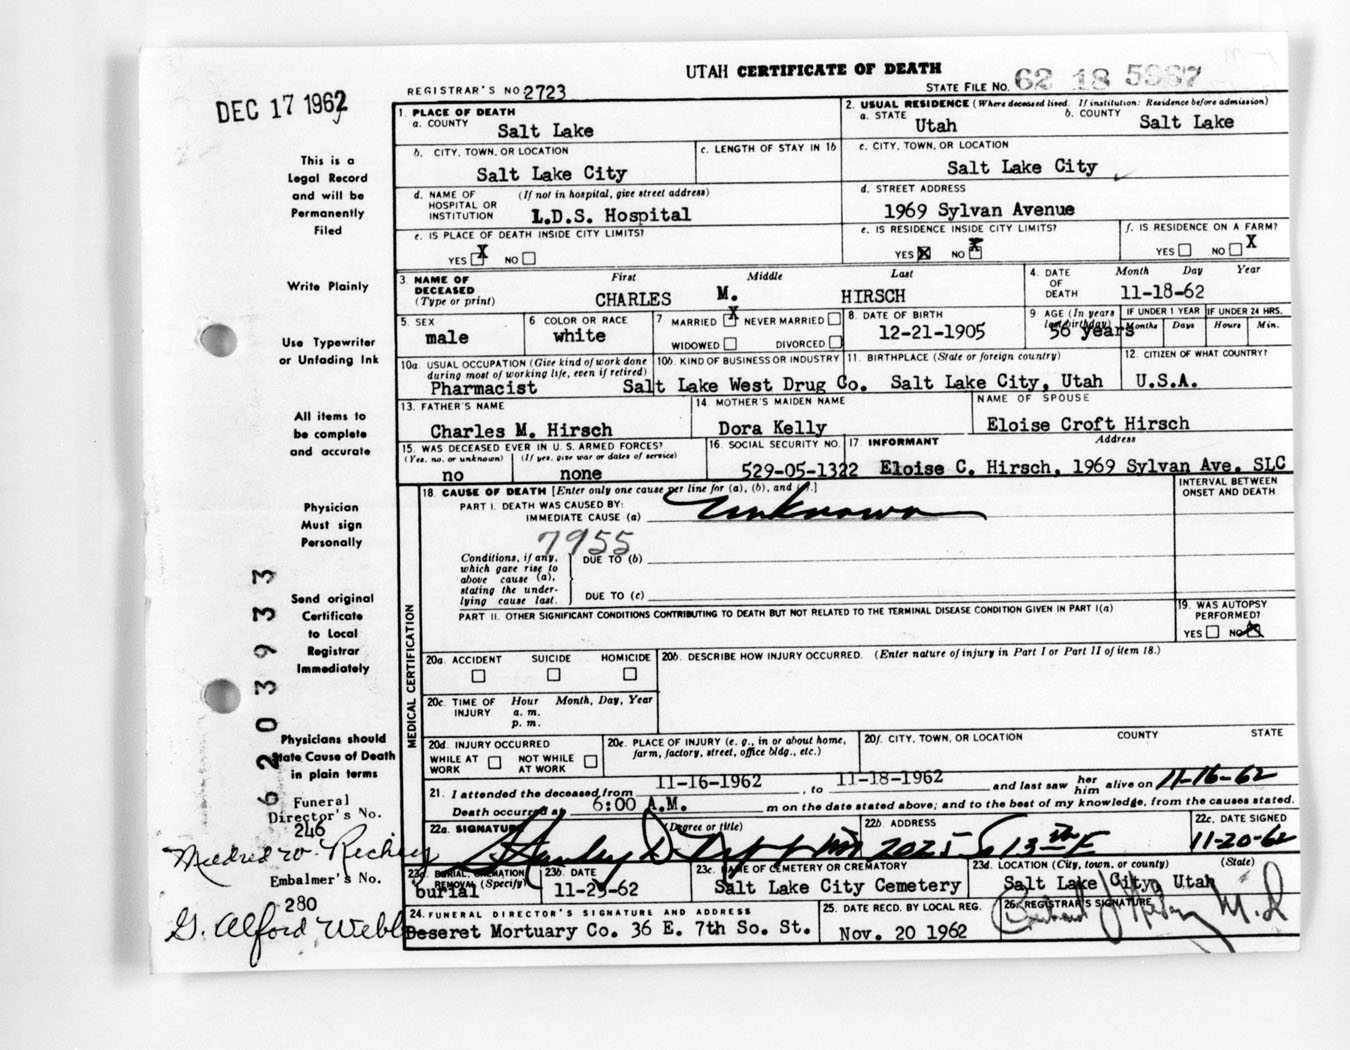 UTAH CERTIFICATE OF DEATH
DEC 17 1962
REGISTRAR'S NO. 2723
STATE FILE NO. 62 18 5987
1. PLACE OF DEATH
a. COUNTY
Salt Lake
2. USUAL RESIDENCE (Where deceased lived. If institution: Residence before admission)
a. STATE
Utah
b. COUNTY
Salt Lake
b. CITY, TOWN, OR LOCATION
Salt Lake City
c. LENGTH OF STAY IN 1b
c. CITY, TOWN, OR LOCATION
Salt Lake City
d. NAME OF HOSPITAL OR INSTITUTION
(If not in hospital, give street address)
L.D.S. Hospital
d. STREET ADDRESS
1969 Sylvan Avenue
e. IS PLACE OF DEATH INSIDE CITY LIMITS?
YES X NO
e. IS RESIDENCE INSIDE CITY LIMITS?
YES X NO X
f. IS RESIDENCE ON A FARM?
YES NO X
3. NAME OF DECEASED
(Type or print)
First Middle Last
CHARLES M. HIRSCH
4. DATE OF DEATH
Month Day Year
11-18-62
5. SEX
male
6 COLOR OR RACE
white
7 MARRIED X NEVER MARRIED
WIDOWED DIVORCED
8. DATE OF BIRTH
12-21-1905
9 AGE (In years last birthday)
56 years
IF UNDER 1 YEAR
Months Days
IF UNDER 24 HRS.
Hours Min.
10a. USUAL OCCUPATION (Give kind of work done during most of working life, even if retired)
Pharmacist
10b. KIND OF BUSINESS OR INDUSTRY
Salt Lake West Drug Co.
11. BIRTHPLACE (State or foreign country)
Salt Lake City, Utah
12. CITIZEN OF WHAT COUNTRY?
U.S.A.
13. FATHER'S NAME
Charles M. Hirsch
14. MOTHER'S MAIDEN NAME
Dora Kelly
NAME OF SPOUSE
Eloise Croft Hirsch
15. WAS DECEASED EVER IN U. S. ARMED FORCES?
(Yes, no, or unknown) (If yes, give war or dates of service)
no none
16. SOCIAL SECURITY NO.
529-05-1322
17. INFORMANT Address
Eloise C. Hirsch, 1969 Sylvan Ave. SLC
18. CAUSE OF DEATH [Enter only one cause per line for (a), (b), and (c).]
INTERVAL BETWEEN ONSET AND DEATH
PART I. DEATH WAS CAUSED BY:
IMMEDIATE CAUSE (a) Unknown
7955
Conditions, if any, which gave rise to above cause (a), stating the underlying cause last.
DUE TO (b)
DUE TO (c)
PART II. OTHER SIGNIFICANT CONDITIONS CONTRIBUTING TO DEATH BUT NOT RELATED TO THE TERMINAL DISEASE CONDITION GIVEN IN PART I(a)
19. WAS AUTOPSY PERFORMED?
YES NO X
MEDICAL CERTIFICATION
20a. ACCIDENT SUICIDE HOMICIDE
20b. DESCRIBE HOW INJURY OCCURRED. (Enter nature of injury in Part I or Part II of item 18.)
20c. TIME OF INJURY
Hour Month, Day, Year
a. m.
p. m.
20d. INJURY OCCURRED
WHILE AT WORK NOT WHILE AT WORK
20e. PLACE OF INJURY (e. g., in or about home, farm, factory, street, office bldg., etc.)
20f. CITY, TOWN, OR LOCATION COUNTY STATE
21. I attended the deceased from 11-16-1962, to 11-18-1962 and last saw her him alive on 11-16-62
Death occurred at 6:00 A.M. m on the date stated above; and to the best of my knowledge, from the causes stated.
22a. SIGNATURE (Degree or title)
Stanley
22b. ADDRESS
2025 S 13th E
22c. DATE SIGNED
11-20-62
23a. BURIAL, CREMATION REMOVAL (Specify)
burial
23b. DATE
11-23-62
23c. NAME OF CEMETERY OR CREMATORY
Salt Lake City Cemetery
23d. LOCATION (City, town, or county) (State)
Salt Lake City, Utah
24. FUNERAL DIRECTOR'S SIGNATURE AND ADDRESS
Deseret Mortuary Co. 36 E. 7th So. St.
25. DATE RECD. BY LOCAL REG.
Nov. 20 1962
26. REGISTRAR'S SIGNATURE
M.D
This is a
Legal Record
and will be
Permanently
Filed
Write Plainly
Use Typewriter
or Unfading Ink
All items to
be complete
and accurate
Physician
Must sign
Personally
Send original
Certificate
to Local
Registrar
Immediately
Physicians should
state Cause of Death
in plain terms
Funeral
Director's No.
246
Mildred W.
Embalmer's No.
280
G. Alford Webb
6203933